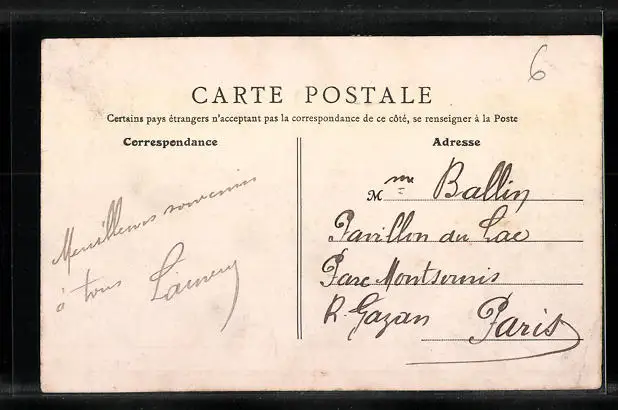 6
CARTE POSTALE
Certains pays étrangers n'acceptant pas la correspondance de ce côté, se renseigner à la Poste
Correspondance
Adresse
Meilleurs souvenirs
à tous
Mme Ballin
Pavillon du Lac
Parc Montsouris
R. Gazan Paris